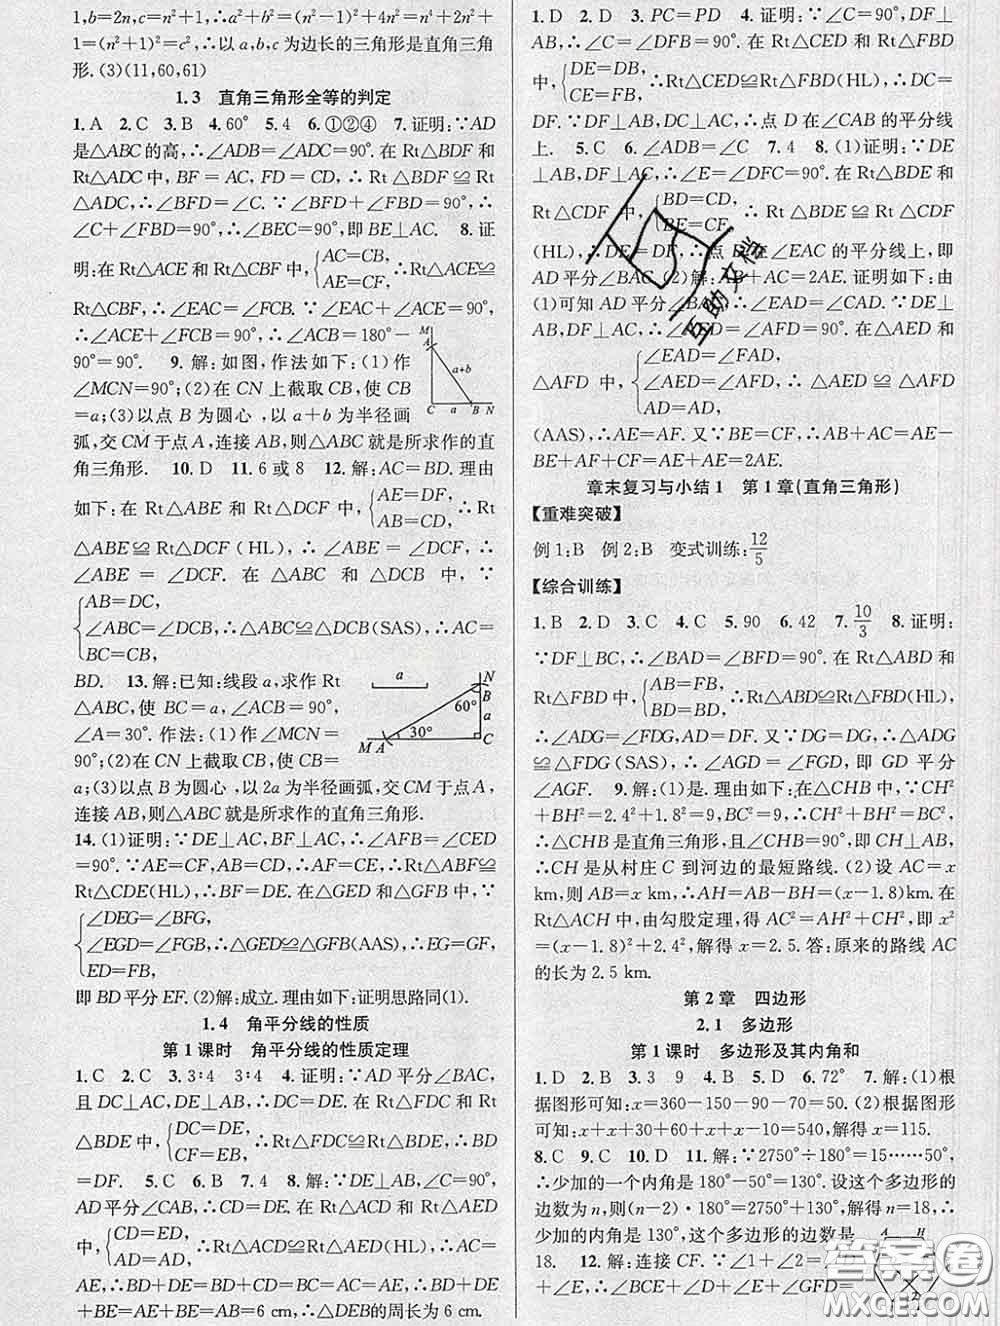 1,b=2n,c=n²+1,∴a²+b²=(n²-1)²+4n²=n⁴+2n²+
1=(n²+1)²=c²,∴以a,b,c为边长的三角形是直角三角
形.(3)(11,60,61)
1.3 直角三角形全等的判定
1.A 2.C 3.B 4.60° 5.4 6.①②④ 7.证明:∵AD
是△ABC的高,∴∠ADB=∠ADC=90°.在Rt△BDF和
Rt△ADC中,BF=AC,FD=CD,∴Rt△BDF≌Rt
△ADC,∴∠BFD=∠C.∵∠BFD+∠FBD=90°,∴
∠C+∠FBD=90°,∴∠BEC=90°,即BE⊥AC. 8.证
明:在Rt△ACE和Rt△CBF中,{AC=CB,
AE=CF,∴Rt△ACE≌
Rt△CBF,∴∠EAC=∠FCB.∵∠EAC+∠ACE=90°,
∴∠ACE+∠FCB=90°,∴∠ACB=180°-
90°=90°. 9.解:如图,作法如下:(1)作
∠MCN=90°;(2)在CN上截取CB,使CB
=a;(3)以点B为圆心,以a+b为半径画
弧,交CM于点A,连接AB,则△ABC就是所求作的直
角三角形. 10.D 11.6或8 12.解:AC=BD.理由
如下:在Rt△ABE和Rt△DCF中,{AE=DF,
AB=DC,∴Rt
△ABE≌Rt△DCF(HL),∴∠ABE=∠DCF,即
∠ABC=∠DCF.在△ABC和△DCB中,∵
{AB=DC,
∠ABC=∠DCB,∴△ABC≌△DCB(SAS),∴AC=
BC=CB,
BD. 13.解:已知:线段a,求作Rt
△ABC,使BC=a,∠ACB=90°,
∠A=30°.作法:(1)作∠MCN=
90°;(2)在CN上截取CB,使CB=
a;(3)以点B为圆心,以2a为半径画弧,交CM于点A,
连接AB,则△ABC就是所求作的直角三角形.
14.(1)证明:∵DE⊥AC,BF⊥AC,∴∠AFB=∠CED
=90°.∵AE=CF,AB=CD,∴AF=CE,∴Rt△ABF≌
Rt△CDE(HL),∴BF=DE.在△GED和△GFB中,∵
{∠DEG=∠BFG,
∠EGD=∠FGB,∴△GED≌△GFB(AAS),∴EG=GF,
ED=FB,
即BD平分EF.(2)解:成立.理由如下:证明思路同(1).
1.4 角平分线的性质
第1课时 角平分线的性质定理
1.C 2.C 3.3:4 3:4 4.证明:∵AD平分∠BAC,
且DC⊥AC,DE⊥AB,∴DC=DE.在Rt△FDC和Rt
△BDE中,{DC=DE,
CF=EB,∴Rt△FDC≌Rt△BDE,∴BD
=DF. 5.C 6.C 7.4 8.解:∵AD平分∠CAE,∠C=90°,
AD为公共边,∴CD=DE.在Rt△ACD和Rt△AED
中,{CD=ED,
AD=AD,∴Rt△ACD≌Rt△AED(HL),∴AC=
AE,∴BD+DE=BD+CD=BC=AC=AE,∴BD+DE
+BE=AE+BE=AB=6 cm,∴△DEB的周长为6 cm.
1.D 2.D 3.PC=PD 4.证明:∵∠C=90°,DF⊥
AB,∴∠C=∠DFB=90°.在Rt△CED和Rt△FBD
中,{DE=DB,
CE=FB,∴Rt△CED≌Rt△FBD(HL),∴DC=
DF.∵DF⊥AB,DC⊥AC,∴点D在∠CAB的平分线
上. 5.C 6.∠ADB=∠C 7.4 8.(1)证明:∵DE
⊥AB,DF⊥AC,∴∠E=∠DFC=90°.在Rt△BDE和
Rt△CDF中{BD=CD,
BE=CF,∴Rt△BDE≌Rt△CDF
(HL),∴DE=DF,∴点D在∠EAC的平分线上,即
AD平分∠BAC.(2)解:AB+AC=2AE.证明如下:由
(1)可知AD平分∠BAC,∴∠EAD=∠CAD.∵DE⊥
AB,DF⊥AC,∴∠E=∠AFD=90°.在△AED和
△AFD中,{∠EAD=∠FAD,
∠AED=∠AFD,∴△AED≌△AFD
AD=AD,
(AAS),∴AE=AF.又∵BE=CF,∴AB+AC=AE-
BE+AF+CF=AE+AE=2AE.
章末复习与小结1 第1章(直角三角形)
【重难突破】
例1:B 例2:B 变式训练:12/5
【综合训练】
1.B 2.D 3.C 4.C 5.90 6.42 7.10/3 8.证明:
∵DF⊥BC,∴∠BAD=∠BFD=90°.在Rt△ABD和
Rt△FBD中,{AB=FB,
BD=BD,∴Rt△ABD≌Rt△FBD(HL),
∴∠ADG=∠FDG,AD=FD.又∵DG=DG,∴△ADG
≌△FDG(SAS),∴∠AGD=∠FGD,即GD平分
∠AGF. 9.解:(1)是.理由如下:在△CHB中,∵CH²
+BH²=2.4²+1.8²=9,BC²=9,∴CH²+BH²=BC²,
∴△CHB是直角三角形,且∠CHB=90°,即CH⊥AB,
∴CH是从村庄C到河边的最短路线.(2)设AC=x
km,则AB=x km,∴AH=AB-BH=(x-1.8)km.在
Rt△ACH中,由勾股定理,得AC²=AH²+CH²,即x²
=(x-1.8)²+2.4²,解得x=2.5.答:原来的路线AC
的长为2.5 km.
第2章 四边形
2.1 多边形
第1课时 多边形及其内角和
1.D 2.B 3.3 9 4.B 5.D 6.72° 7.解:(1)根
据图形可知:x=360-150-90-70=50.(2)根据图形
可知:x+x+30+60+x+x-10=540,解得x=115.
8.C 9.C 10.D 11.解:∵2750°÷180°=15……50°,
∴少加的一个内角是180°-50°=130°.设这个多边形的
边数为n,则(n-2)·180°=2750°+130°,解得n=18,∴
少加的内角是130°,这个多边形的边数是
18. 12.解:连接CF.∵∠1+∠2=∠D
+∠E,∴∠BCE+∠D+∠E+∠GFD=
M
A
a+b
C a B N
a
N
B
60°
a
30°
M A C
互助文档
答案圈
MXQE.COM